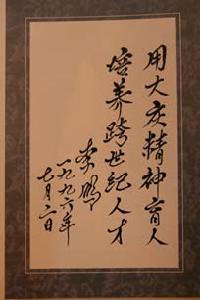 用大庆精神育人
培养跨世纪人才
李鹏
一九九六年
七月二日